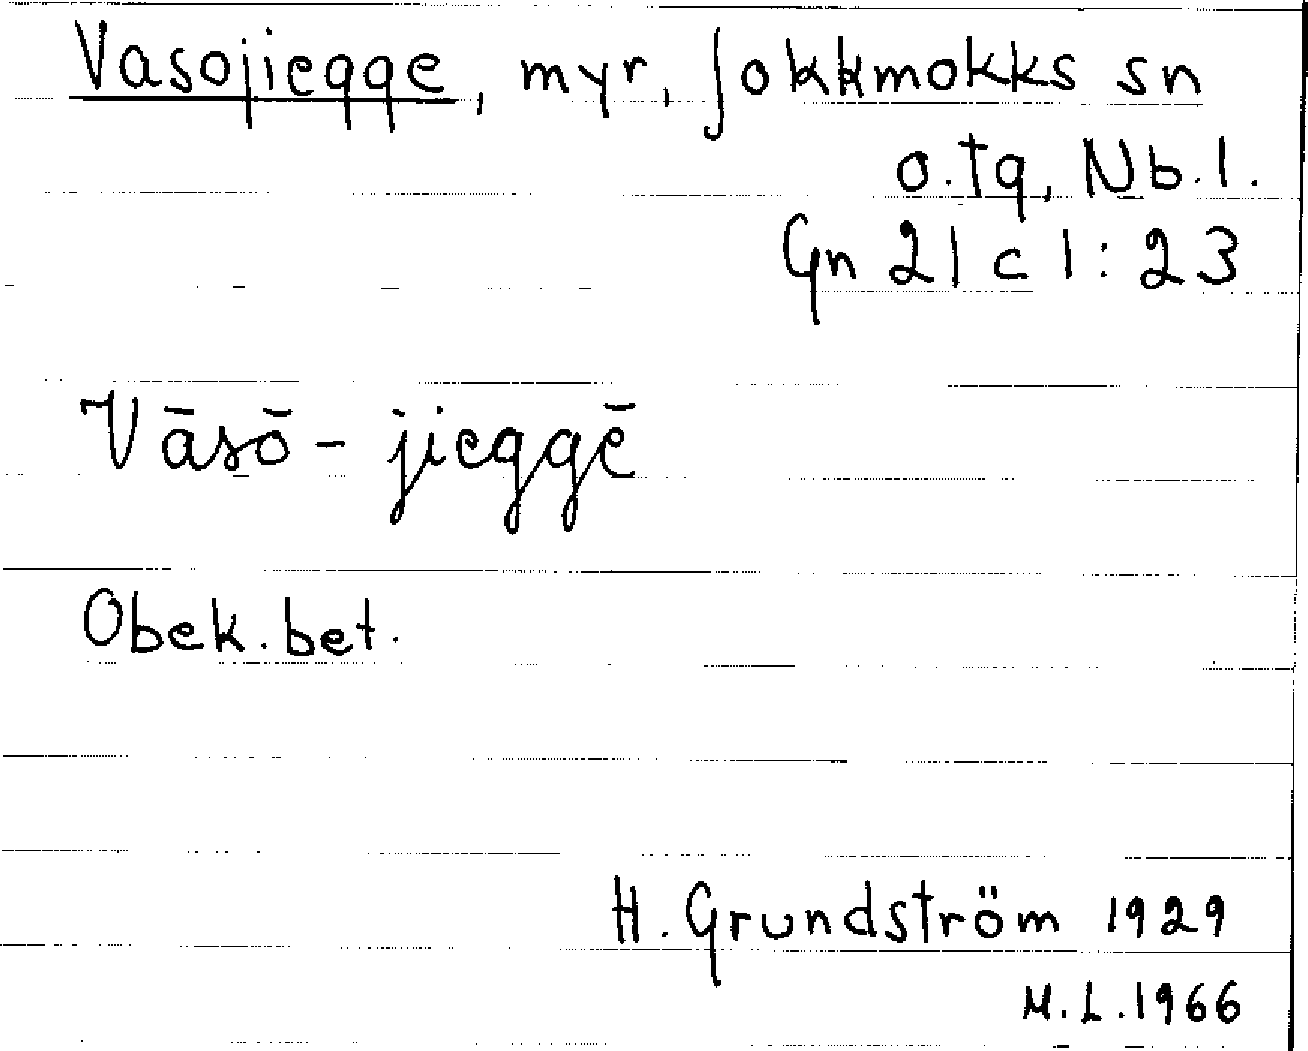 Vasojiegge, myr, Jokkmokks sn
o. tg, Nb. l.
Gn 21 c 1:23
Vāsō-jieggē
Obek. bet.
H. Grundström 1929
M.L. 1966